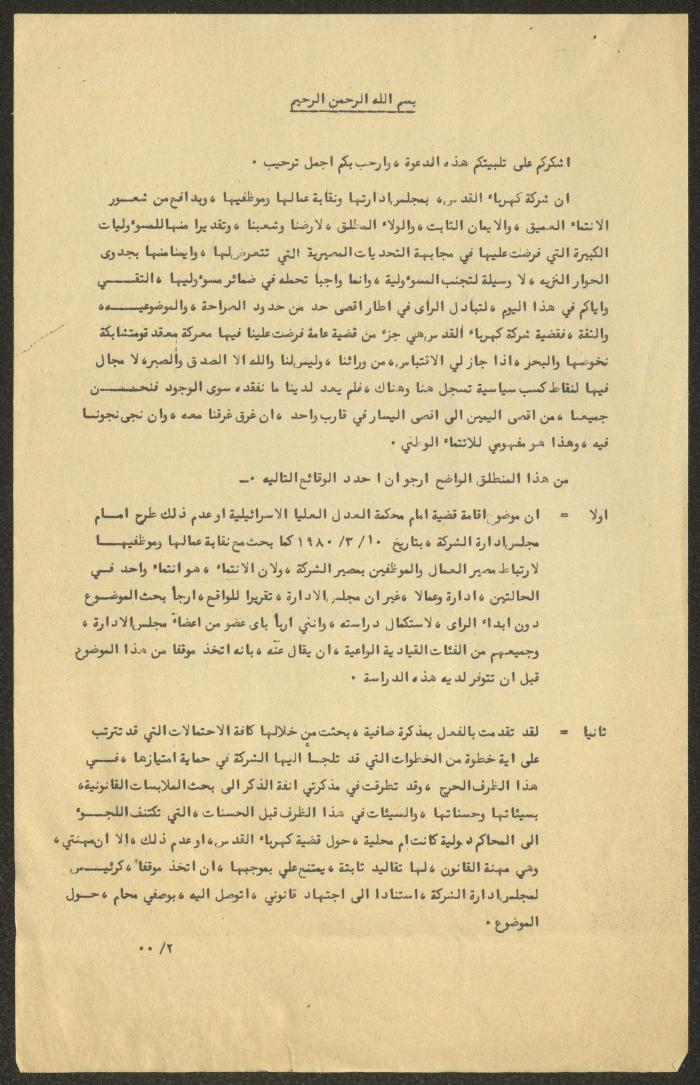 بسم الله الرحمن الرحيم
اشكركم على تلبيتكم هذه الدعوة ، وارحب بكم اجمل ترحيب .
ان شركة كهرباء القدس ، بمجلس ادارتها ونقابة عمالها وموظفيها ، وبدافع من شعــور
الانتماء العميق ، والايمان الثابت ، والولاء المطلق ، لارضنا وشعبنا ، وتقديرا منها للمسوءوليات
الكبيرة التي فرضت عليها في مجابهة التحديات المصيرية التي تتعرض لها ، وايمنا منها بجدوى
الحوار النزيه ، لا وسيلة لتجنب المسوءولية ، وانما واجبا تحمله في ضمائر مسوءوليها ، التقــــي
واياكم في هذا اليوم ، لتبادل الرأى في اطار اقصى حد من حدود الصراحة ، والموضوعيــــه ،
والثقة ، فقضية شركة كهرباء القدس هي جزء من قضية عامة فرضت علينا فيها معركة معقدة ومتشابكة
نخوضها والبحر ، اذا جاز لي الاقتباس ، من ورائنا ، وليس لنا والله الا الصدق والصبر ، لا مجال
فيها لنقاط كسب سياسية تسجل هنا وهناك ، فلم يعد لدينا ما نفقده سوى الوجود فنحـــــن
جميعا ، من اقصى اليمين الى اقصى اليسار في قارب واحد ، ان غرق غرقنا معه ، وان نجى نجونــا
فيه ، وهذا هو مفهومي للانتماء الوطني .
من هذا المنطلق الواضح ارجو ان احدد الوقائع التاليه .ــ
اولا = ان موضوع اقامة قضية امام محكمة العدل العليا الاسرائيلية او عدم ذلك طرح امــام
مجلس ادارة الشركة ، بتاريخ ١٩٨٠/٣/١٠ كما بحث مع نقابة عمالها وموظفيهــا
لارتباط مصير العمال والموظفين بمصير الشركة ، ولان الانتماء ، هو انتماء واحد فــي
الحالتين ، ادارة وعمالا ، غير ان مجلس الادارة ، تقريرا للواقع ، ارجأ بحث الموضــوع
دون ابداء الراى ، لاستكمال دراسته ، وانني اربأ باى عضو من اعضاء مجلس الادارة ،
وجميعهم من الفئات القيادية الواعية ، ان يقال عنه ، بانه اتخذ موقفا من هذا الموضوع
قبل ان تتوفر لديه هذه الدراسة .
ثانيا = لقد تقدمت بالفعل بمذكرة ضافية ، بحثت من خلالها كافة الاحتمالات التي قد تترتب
على اية خطوة من الخطوات التي قد تلجأ اليها الشركة في حماية امتيازها ، فــــي
هذا الظرف الحرج ، وقد تطرقت في مذكرتي انفة الذكر الى بحث الملابسات القانونية ،
بسيئاتها وحسناتها ، والسيئات في هذا الظرف قبل الحسنات ، التي تكتنف اللجــوء
الى المحاكم دولية كانت ام محلية ، حول قضية كهرباء القدس ، او عدم ذلك ، الا ان مهنتي ،
وهي مهنة القانون ، لها تقاليد ثابتة ، يمتنع علي بموجبها ، ان اتخذ موقفا ، كرئيــس
لمجلس ادارة الشركة ، استنادا الى اجتهاد قانوني ، اتوصل اليه ، بوصفي محام ، حــول
الموضوع .
٢/ ..